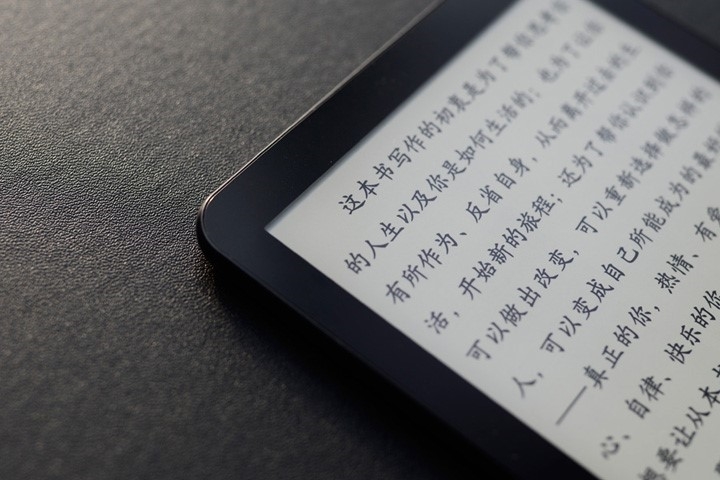 这本书写作的初衷是为了帮你思考你
的人生以及你是如何生活的；也为了让你
有所作为、反省自身，从而离开过去的生
活，开始新的旅程；还为了帮你认识到你
可以做出改变，可以重新选择做怎样的
人，可以变成自己所能成为的最好
——真正的你，热情、有爱
心、自律、快乐的你
想要让从本